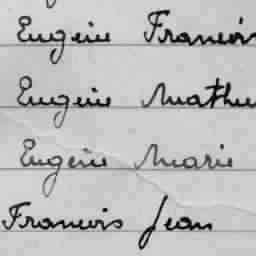 Eugène Francois
Eugène Mathu
Eugène Marie
Francois Jean